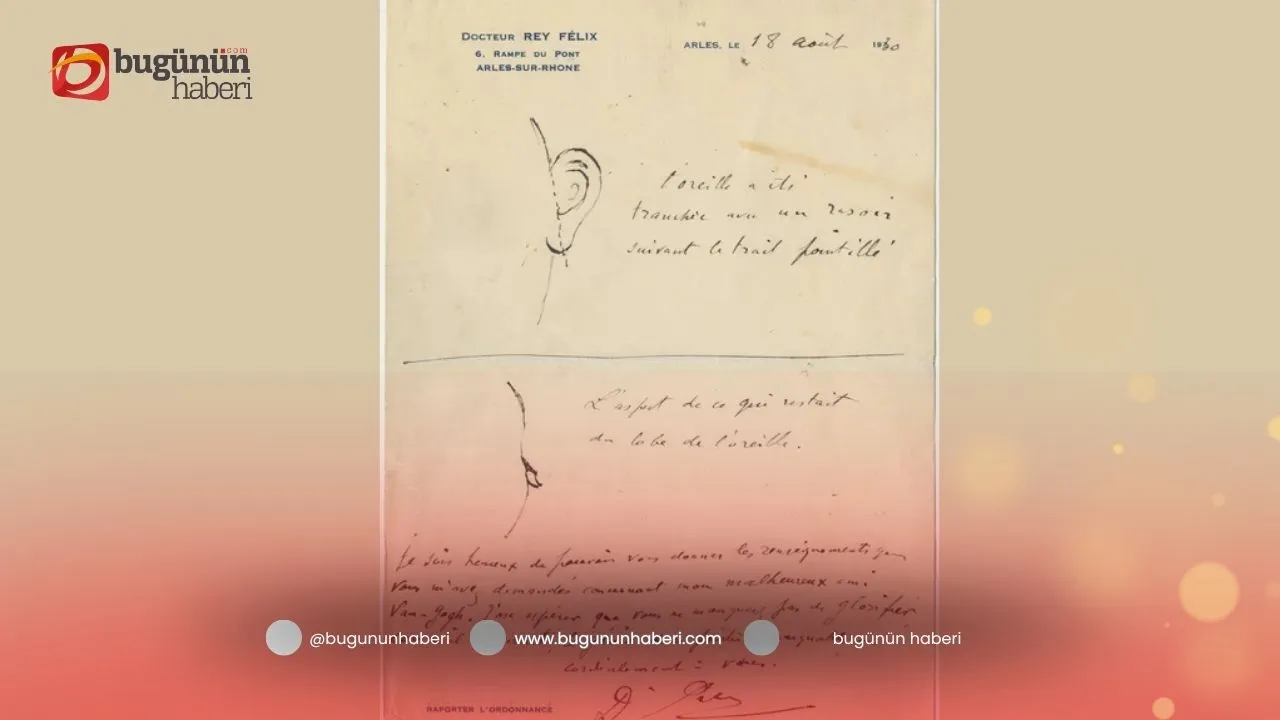 bugünün
.com
haberi
DOCTEUR REY FÉLIX
6, RAMPE DU PONT
ARLES-SUR-RHONE
ARLES, LE 18 août 1930
l'oreille a été
tranchée avec un rasoir
suivant le trait pointillé
L'aspect de ce qui restait
du lobe de l'oreille.
Je suis heureux de pouvoir vous donner les renseignements que
vous m'avez demandés concernant mon malheureux ami
Van-Gogh. J'ose espérer que vous ne manquerez pas de glorifier
@bugununhaberi
www.bugununhaberi.com
bugünün haberi
cordialement à vous.
Dr Rey
RAPORTER L'ORDONNANCE